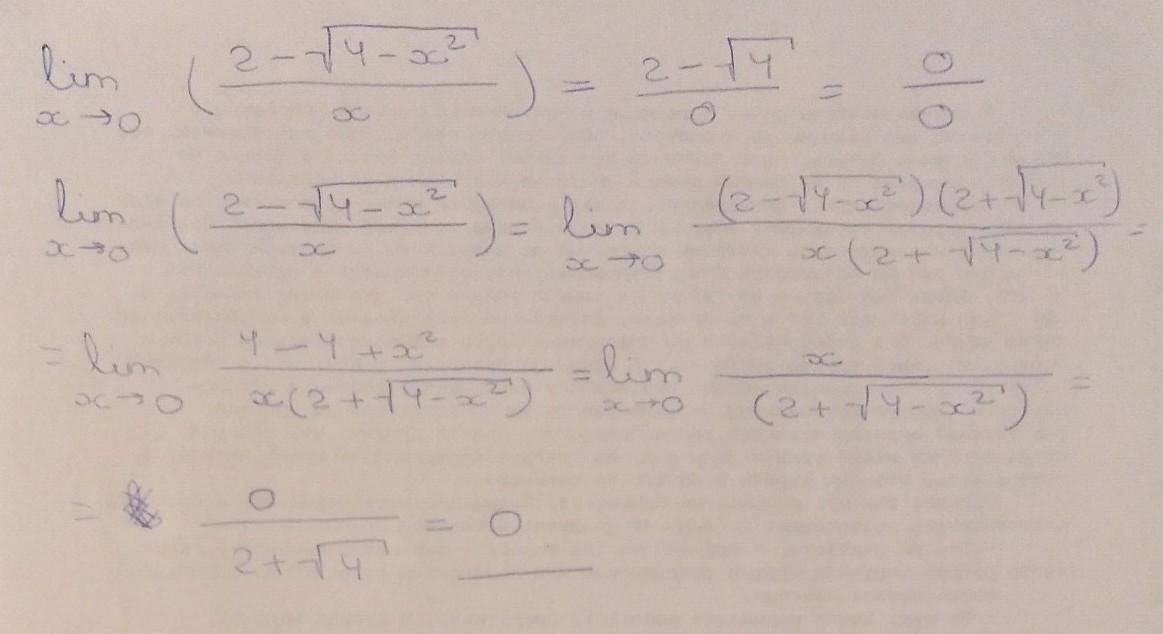 lim x→0 ( (2 - √(4 - x²)) / x ) = (2 - √4) / 0 = 0 / 0
lim x→0 ( (2 - √(4 - x²)) / x ) = lim x→0 ((2 - √(4 - x²)) (2 + √(4 - x²))) / (x (2 + √(4 - x²))) =
= lim x→0 (4 - 4 + x²) / (x (2 + √(4 - x²))) = lim x→0 x / (2 + √(4 - x²)) =
= 0 / (2 + √4) = 0